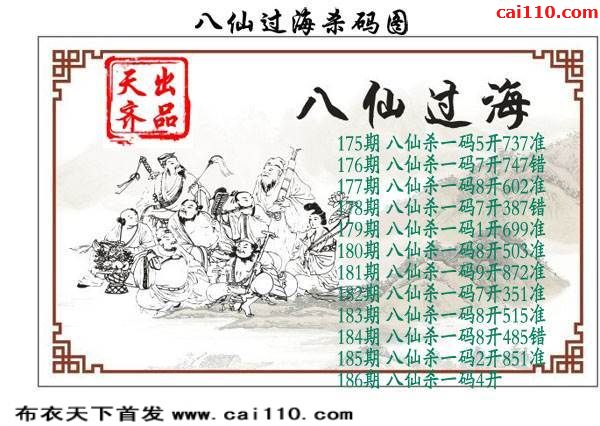 八仙过海杀码图
cai110.com
天齐
出品
八仙过海
175期 八仙杀一码5开737准
176期 八仙杀一码7开747错
177期 八仙杀一码8开602准
178期 八仙杀一码7开387错
179期 八仙杀一码1开699准
180期 八仙杀一码8开503准
181期 八仙杀一码9开872准
182期 八仙杀一码7开351准
183期 八仙杀一码8开515准
184期 八仙杀一码8开485错
185期 八仙杀一码2开851准
186期 八仙杀一码4开
布衣天下首发 www.cai110.com